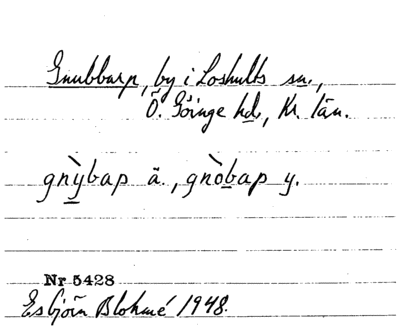 Gnubbarp, by i Loshults sn.,
Ö. Göinge hd., Kr. län.
gnỳbap ä., gnòbap y.
Nr 5428
Esbjörn Blohmé 1948.